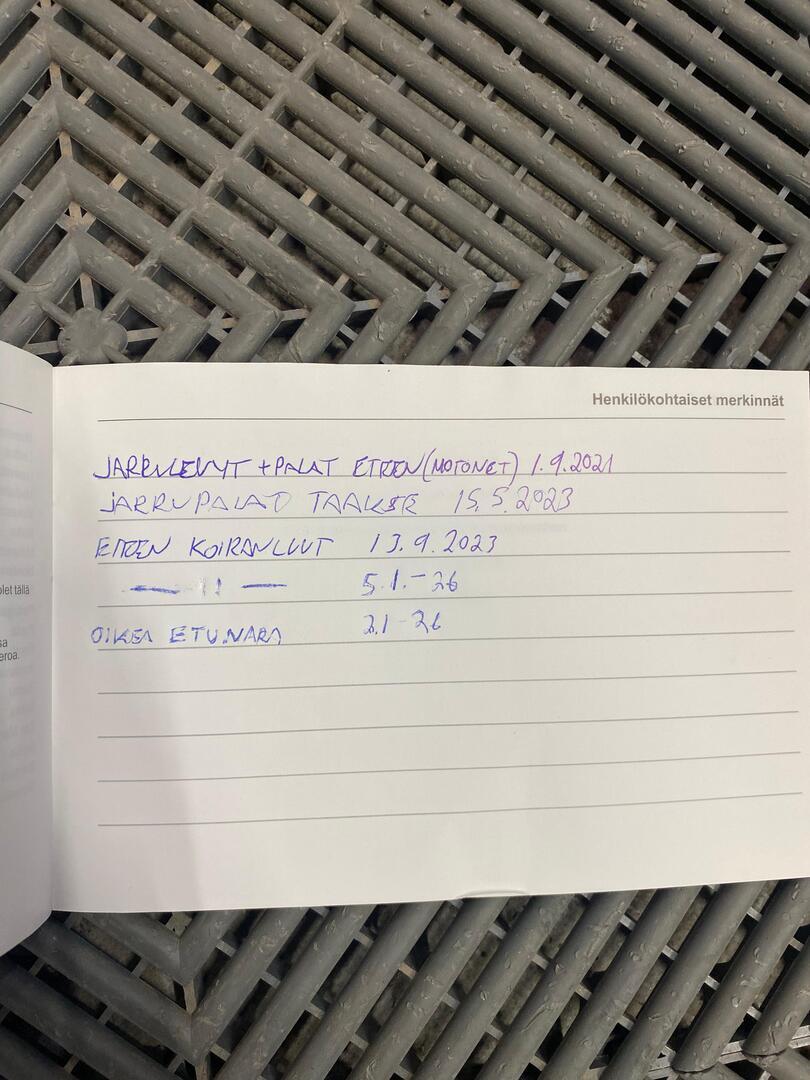 Henkilökohtaiset merkinnät
JARRULEVYT + PALAT ETEEN (MOTONET) 1.9.2021
JARRUPALAT TAAKSE 15.5.2023
ETEEN KOIRANLUUT 13.9.2023
— 11 — 5.1.-26
OIKEA ETUNAPA 2.1-26
olet tällä
sa
eroa.